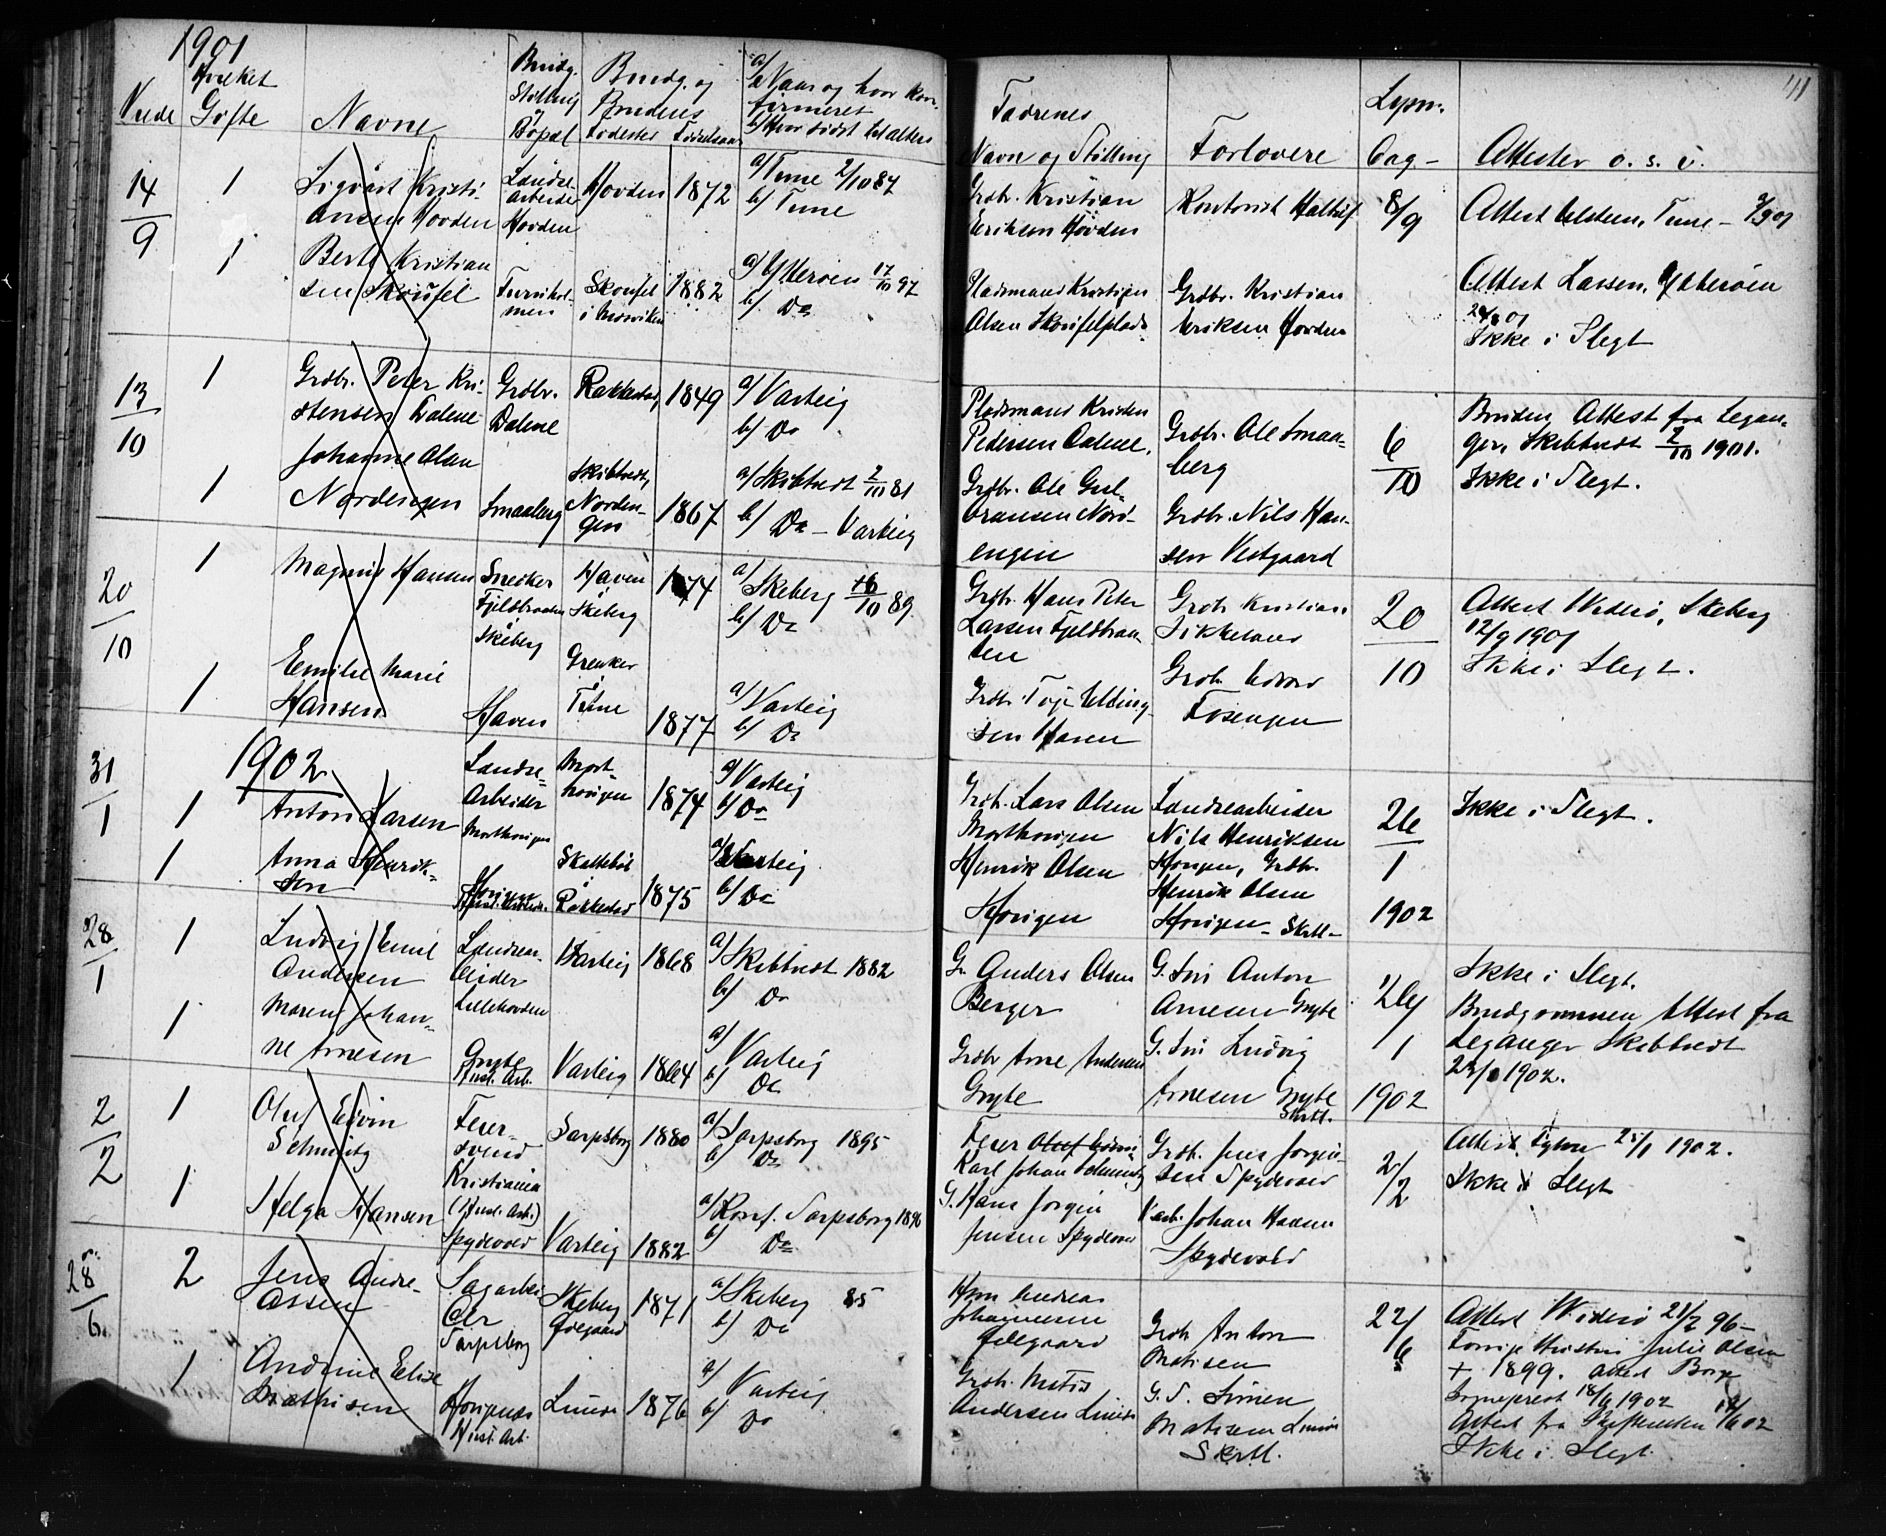 1901
Viede
Hvilket
Gifte
Navne
Brudg.
Stilling
Bopæl
Brudg. og
Brudens
Fødested Fødselsaar
a/ Naar og hvor kon-
firmeret
b/ Hvor sidst til alters
Fædrenes
Navn og Stilling
Forlovere
Lysn.
Dag
Attester o. s. v.
14/9
1
Sigvart Kristi-
ansen Hovden
Landse-
arbeider
Hovden
Hovden
1872
a/ Tune 2/10 87
b/ Tune
Grdbr. Kristian
Eriksen Hovden
Kontorist
8/9
Attest Tune
1
Berte Kristian
sen Skoufel
Skoufel
1882
a/ 17/10 97
b/ Do
Pladsmand Kristian
Olsen Skoufelplads
Grdbr. Kristian
Eriksen Hovden
Attest Larsen,
Ikke i Slegt
13/10
1
Grdbr. Peter Kri-
stensen Dalene
Grdbr.
Dalene
Rakkestad
1849
a/ Varteig
b/ Do
Pladsmand Kristen
Pedersen Dalene.
Grdbr. Ole Smaa-
berg
6/10
Bruden Attest fra Legan-
ger, Skibtvedt 2/10 1901.
Ikke i Slegt.
1
Johanne Olsen
Nordengen
Smaaberg
Skibtvedt,
Norden-
gen
1867
a/ Skibtvedt 2/10 81
b/ Do - Varteig
Grdbr. Ole Gul-
bransen Nord-
engen
Grdbr. Nils Han-
sen Vestgaard
20/10
1
Magnus Hansen
Snedker
Fjeldbraaten
Skeberg
Skeberg
1874
a/ Skeberg 10 89
b/ Do
Grdbr. Hans Peter
Larsen Fjeldbraa-
ten
Grdb Kristian
20/10
Attest Widerö, Skeberg
12/9 1901
Ikke i Slegt.
1
Emilie Marie
Hansen
Haven
Greaker
Tune
1877
a/ Varteig
b/ Do
sen Haven
Grdb.
Fosengen
1902
31/1
1
Anton Larsen
Landse-
Arbeider
1874
a/ Varteig
b/ Do
Grdb. Lars Olsen
Landsearbeider
Nils Henriksen
Hougen, Grdbr.
Henrik Olsen
Hougen - Skrtl-
26/1
1902
Ikke i Slegt.
1
Anna Henrik-
sen
Hougen
Rakkestad
1875
a/ Varteig
b/ Do
Henrik Olsen
Hougen
28/1
1
Ludvig Emil
Andersen
Landsear-
beider
Lillehovden
Varteig
1868
a/ Skibtvedt 1882
b/ Do
G. Anders Olsen
Berger
G. Søn Anton
Arnesen Gryte
26/1
1902
Ikke i Slegt.
Brudgommen Attest fra
Leganger Skibtvedt
1902.
1
Maren Johan-
ne Arnesen
Gryte
Hust. Arb.
Varteig
1864
a/ Varteig
b/ Do
Grdbr Arne Andersen
Gryte
G. Søn Ludvig
Arnesen Gryte
Skrtl.
2/2
1
Oluf Edvin
Schmidtz
Feier-
svend
Kristiania
Sarpsborg
1880
a/ Sarpsborg 1895
b/ Do
Feier
Karl Johan Schmidtz
Grdb. Jens Jorgin-
sen Spydevold
2/2
Attest 25/1 1902.
Ikke i Slegt
1
Helga Hansen
(Hust. Arb.)
Spydevold
Varteig
1882
a/ Konf. Sarpsborg 1896
b/ Do
G. Hans Jorgin
Jensen Spydevold
Johan Hansen
Spydevold
28/6
2
Jens Andre-
assen
Sagarbei-
der
Sarpsborg
Skeberg
Ødegaard
1871
a/ Skeberg 85
b/ Do
Hsm Andreas
Johannesen
Ødegaard
Grdb. Anton
Matisen
22/6
Attest Widerö 96-
Forrige Hustru Julie Olsen
+ 1899. Attest Borge
Sogneprest 18/6 1902
Attest fra Skifteretten 18/6 02
Ikke i Slegt.
1
Andrine Elise
Mathisen
Hougenes
Hust. Arb.
Lunde
1876
a/ Varteig
b/ Do
Grdb. Matis
Andersen Lunde
G. S. Simen
Matisen Lunde
Skrtl.